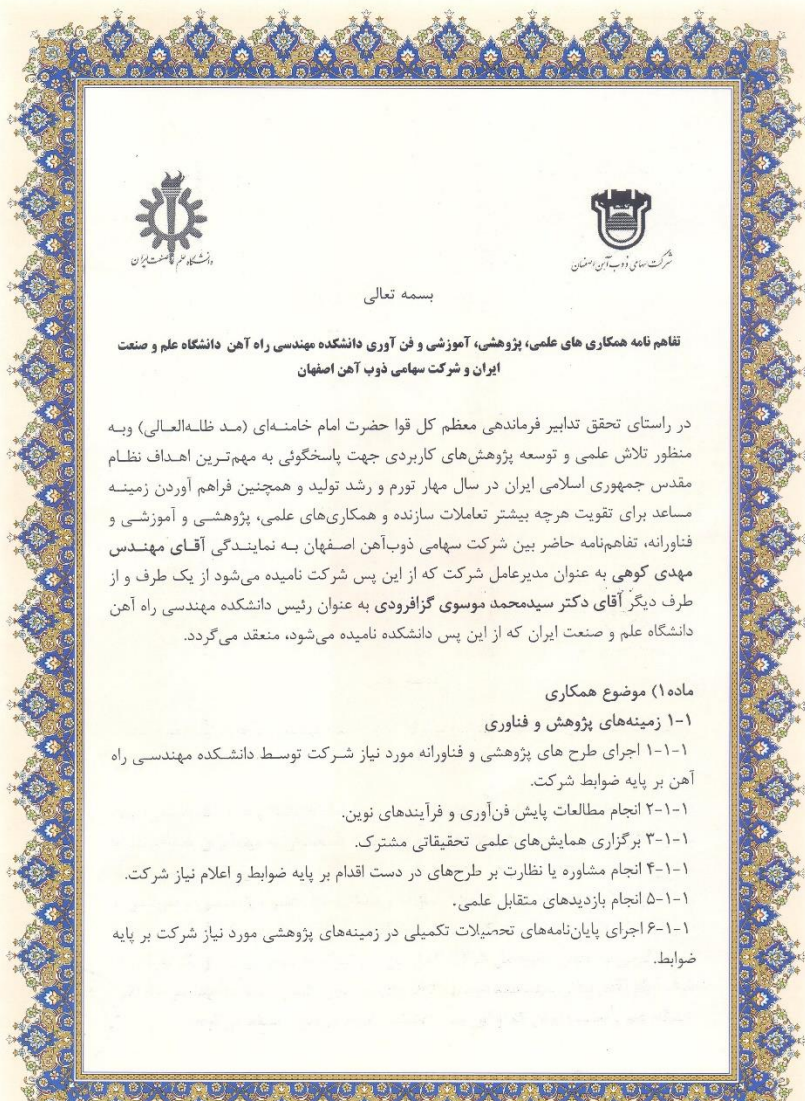 شرکت سهامی ذوب آهن اصفهان
دانشگاه علم و صنعت ایران
بسمه تعالی
تفاهم نامه همکاری های علمی، پژوهشی، آموزشی و فن آوری دانشکده مهندسی راه آهن دانشگاه علم و صنعت
ایران و شرکت سهامی ذوب آهن اصفهان
در راستای تحقق تدابیر فرماندهی معظم کل قوا حضرت امام خامنه‌ای (مد ظله‌العالی) وبه
منظور تلاش علمی و توسعه پژوهش‌های کاربردی جهت پاسخگوئی به مهم‌ترین اهداف نظام
مقدس جمهوری اسلامی ایران در سال مهار تورم و رشد تولید و همچنین فراهم آوردن زمینه
مساعد برای تقویت هرچه بیشتر تعاملات سازنده و همکاری‌های علمی، پژوهشی و آموزشی و
فناورانه، تفاهم‌نامه حاضر بین شرکت سهامی ذوب‌آهن اصفهان به نمایندگی آقای مهندس
مهدی کوهی به عنوان مدیرعامل شرکت که از این پس شرکت نامیده می‌شود از یک طرف و از
طرف دیگر آقای دکتر سیدمحمد موسوی گزافرودی به عنوان رئیس دانشکده مهندسی راه آهن
دانشگاه علم و صنعت ایران که از این پس دانشکده نامیده می‌شود، منعقد می‌گردد.
ماده۱) موضوع همکاری
۱-۱ زمینه‌های پژوهش و فناوری
۱-۱-۱ اجرای طرح های پژوهشی و فناورانه مورد نیاز شرکت توسط دانشکده مهندسی راه
آهن بر پایه ضوابط شرکت.
۲-۱-۱ انجام مطالعات پایش فن‌آوری و فرآیندهای نوین.
۳-۱-۱ برگزاری همایش‌های علمی تحقیقاتی مشترک.
۴-۱-۱ انجام مشاوره یا نظارت بر طرح‌های در دست اقدام بر پایه ضوابط و اعلام نیاز شرکت.
۵-۱-۱ انجام بازدیدهای متقابل علمی.
۶-۱-۱ اجرای پایان‌نامه‌های تحصیلات تکمیلی در زمینه‌های پژوهشی مورد نیاز شرکت بر پایه
ضوابط.